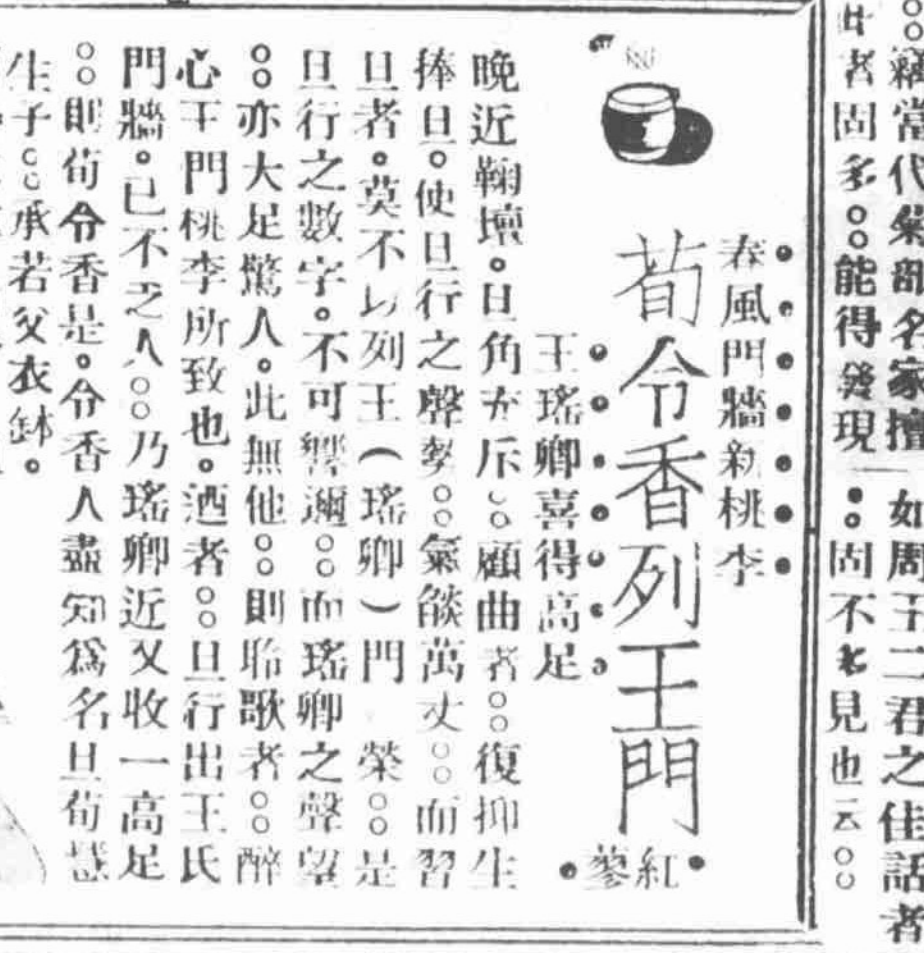 竊當代票部名家擅
如周王二君之佳話者
此者固多。能得發現
固不多見也云。
春風門牆新桃李
荀令香列王門
紅蓼
王瑤卿喜得高足
晚近鞠壇。旦角充斥。顧曲者。復抑生
捧旦。使旦行之聲勢。氣燄萬丈。而習
旦者。莫不以列王(瑤卿)門 榮。是
旦行之數字。不可響邇。而瑤卿之聲望
。亦大足驚人。此無他。則聆歌者。醉
心王門桃李所致也。迺者。旦行出王氏
門牆。已不乏人。乃瑤卿近又收一高足
。則荀令香是。令香人盡知爲名旦荀慧
生子。承若父衣鉢。